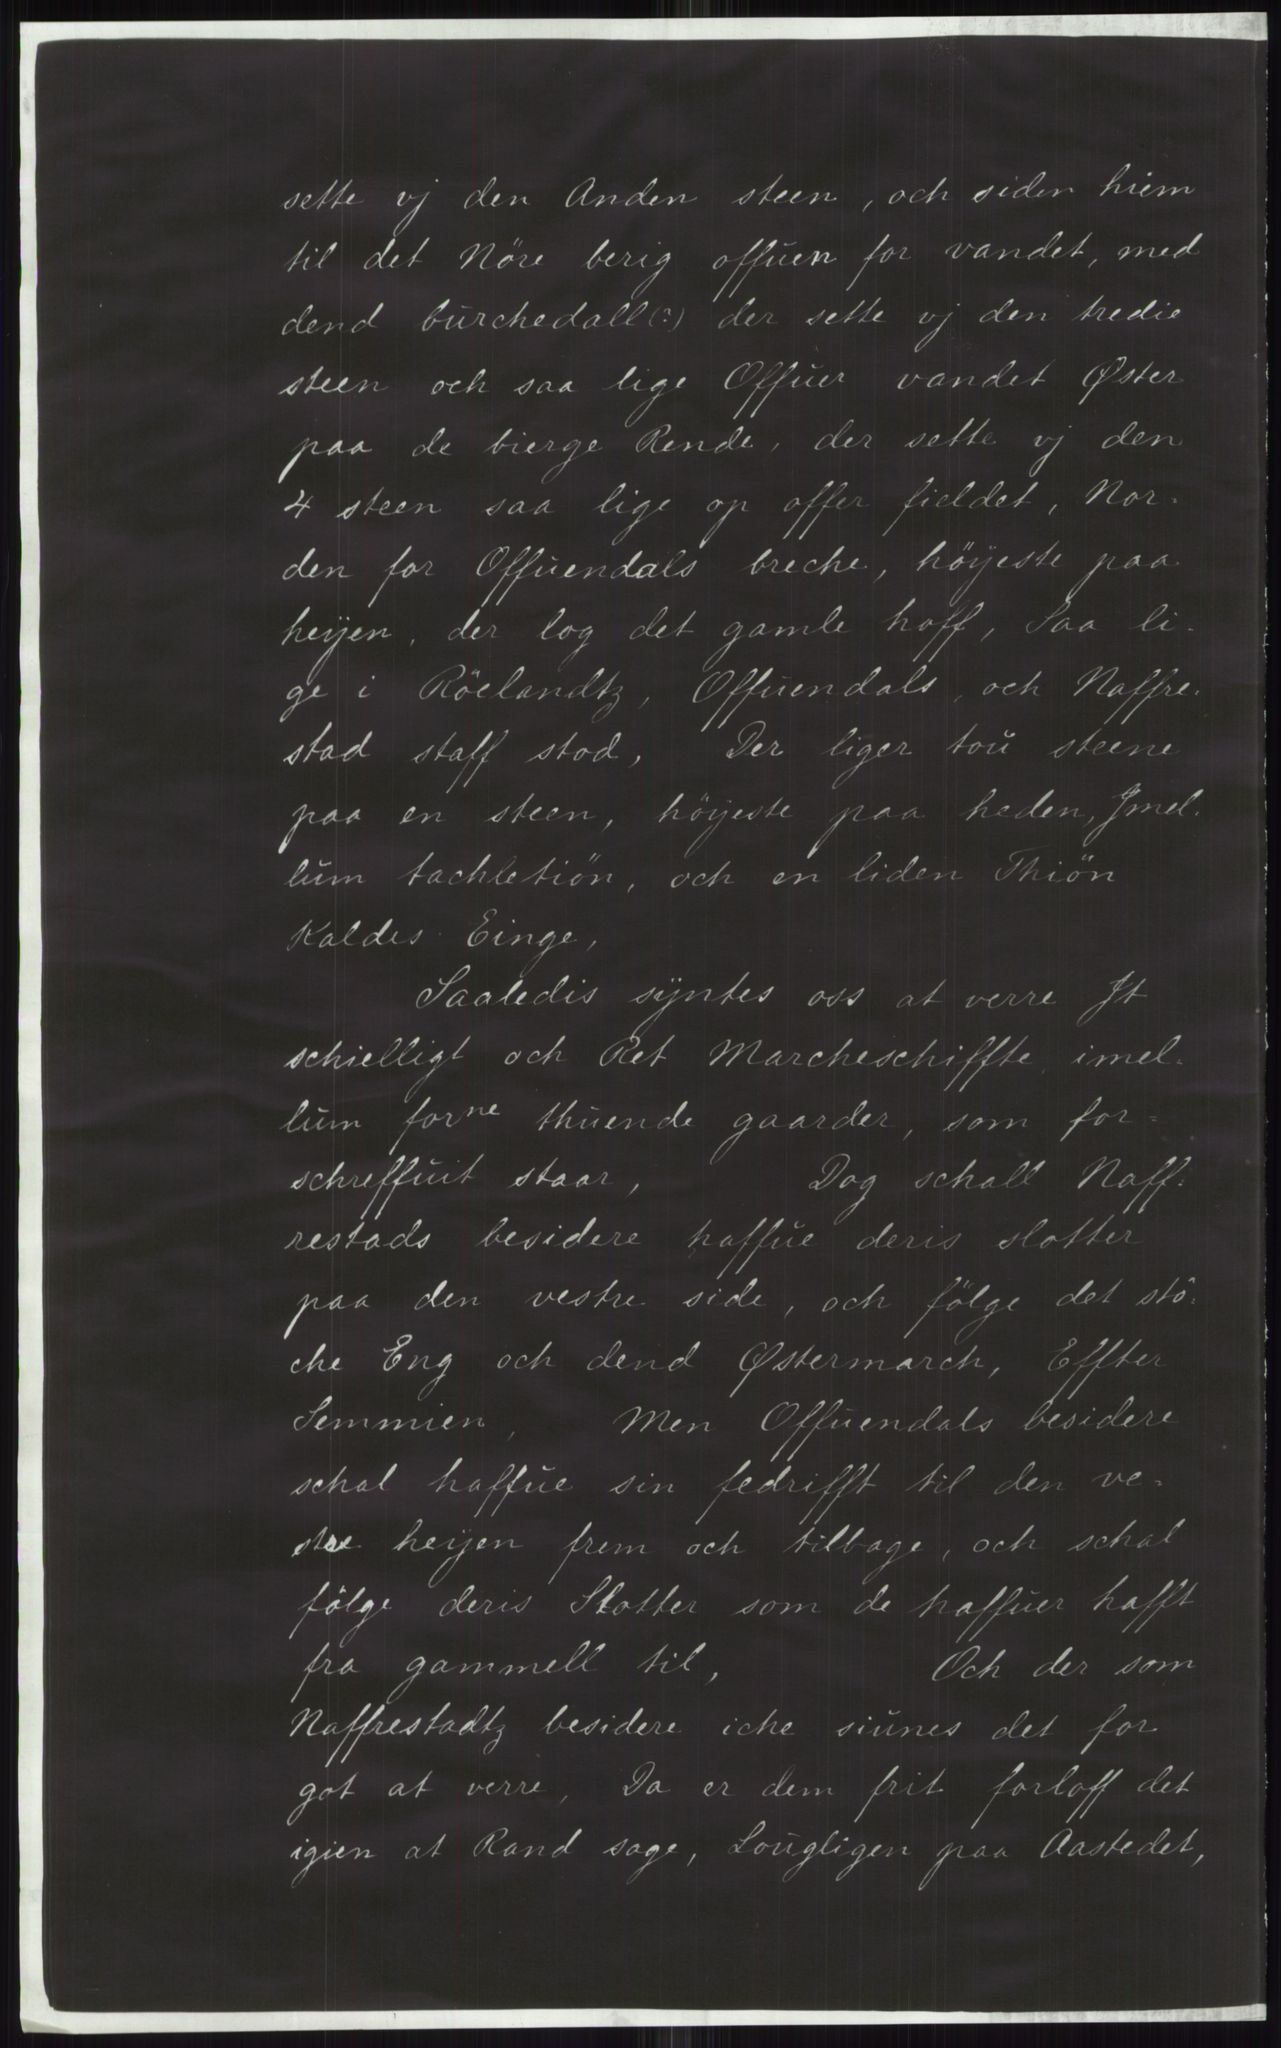 sette vj den Anden steen, och siden hiem
til det Nöre berig offuen for vandet, med
dend burchedall(?) der sette vj den tredie
steen och saa lige Offuer vandet Øster
paa de bierge Rende, der sette vj den
4 steen saa lige op offer fieldet, Nor-
den for Offuendals breche, höyeste paa
heyen, der log det gamle hoff, Saa li-
ge i Röelandtz, Offuendals, och Naffre-
stad staff stod, Der liger tou steene
paa en steen, höyeste paa heden, Jmel-
lum tachletiön, och en liden Thiön
Kaldes Einge,
Saaledis syntes oss at verre Jt
schielligt och Ret Marcheschiffte imel-
lum forne thuende gaarder, som for-
schreffuit staar, Dog schall Naff-
restads besidere haffue deris slotter
paa den vestre side, och fölge det stö-
che Eng och dend Østermarch, Effter
Semmien, Men Offuendals besidere
schal haffue sin fedrifft til den ve-
stre heyen frem och tilbage, och schal
fölge deris Slotter som de haffuer hafft
fra gammell til, Och der som
Naffrestadtz besidere iche siunes det for
got at verre, Da er dem frit forloff det
igien at Rand sage, Lougligen paa Aastedet,